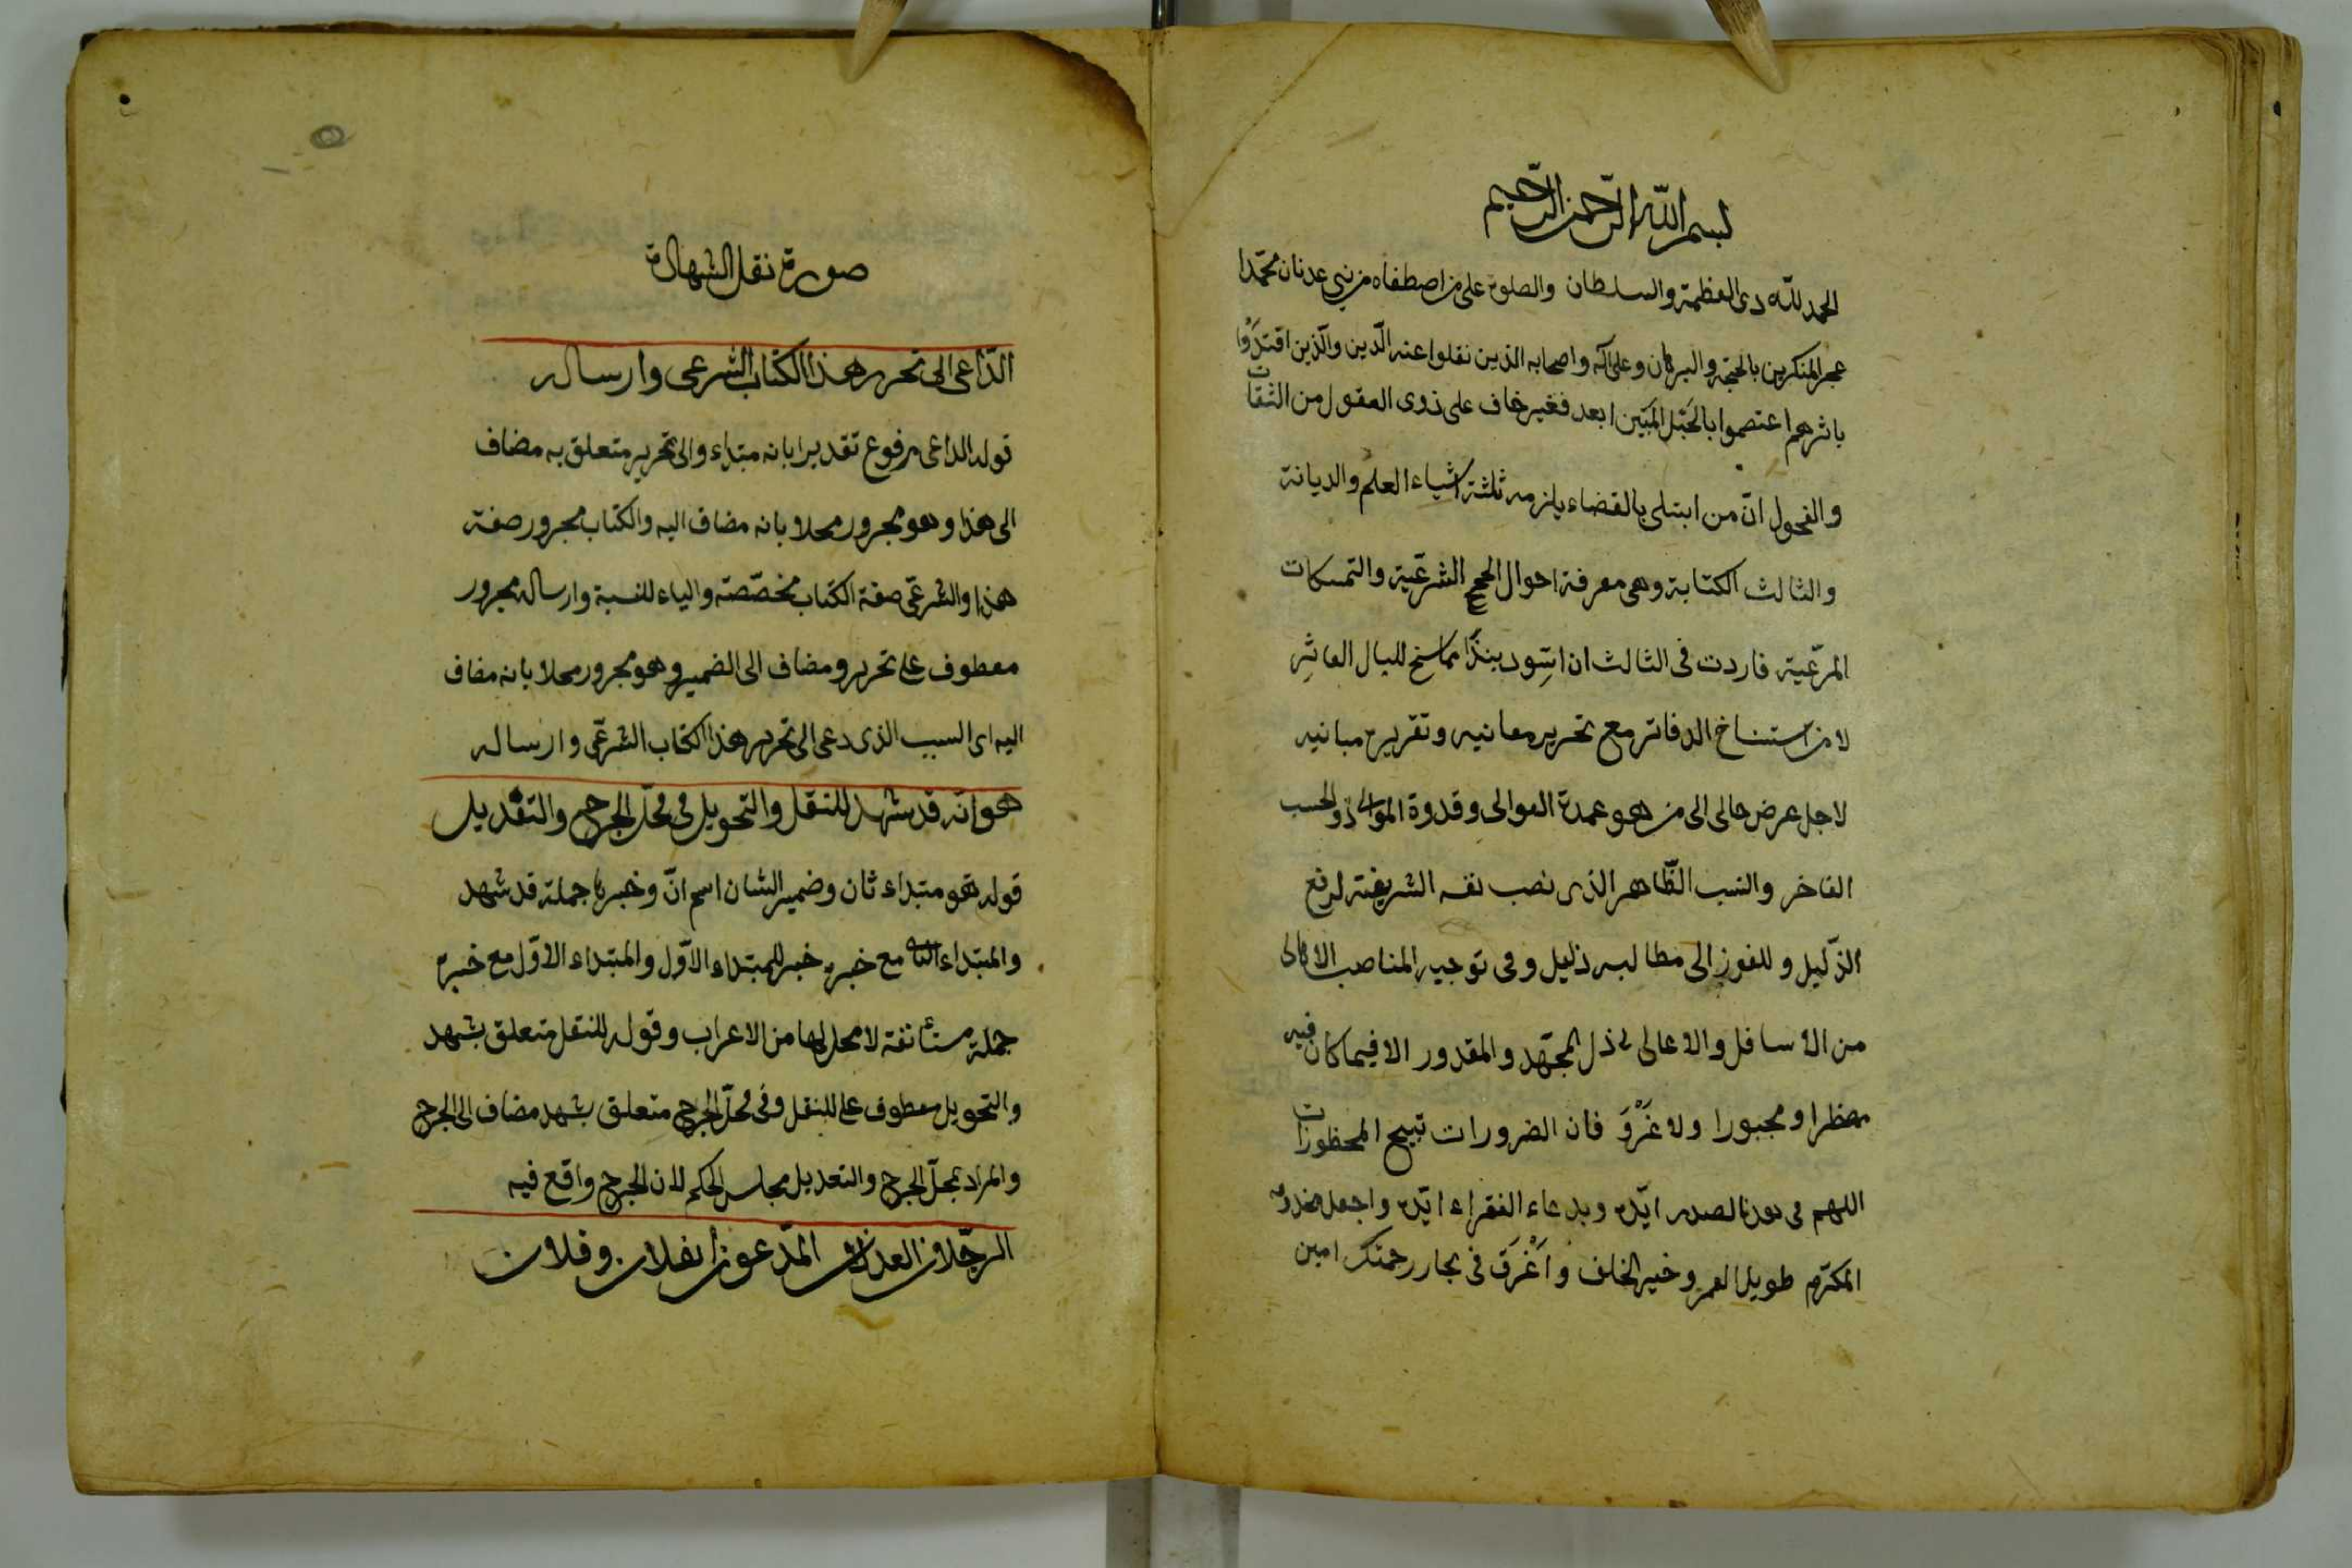 بسم الله الرّحمن الرّحيم
الحمد لله ذى العظمة والسلطان والصلوة على من اصطفاه من بنى عدنان محمّدا
عجز المنكرين بالحجّة والبرهان وعلى آله واصحابه الذين نقلوا عنه الدّين والّذين اقتدَوْا
باثرهم اعتصموا بالحَبْل المَتين ابعد فغير خاف على ذوى العقول من الثقات
والفحول انّ من ابتلى بالقضاء يلزمه ثلثة اشياء العلم والديانة
والثالث الكتابة وهى معرفة احوال الحجج الشرعيّة والتمسكات
المرعيّة فاردت فى الثالث ان اسِّود بنذًا مما سنح للبال الفاتِر
لا من استنساخ الدفاتر مع تحرير معانيه وتقرير مبانيه
لاجل عرض حالى الى من هو عمدة الموالى وقدوة الموالى ذو الحسب
الفاخر والنسب الطّاهر الذى نصب نفسه الشريفة لرفع
الذّليل وللفوز الى مطالبه ذليل وفى توجيه المناصب الاهالى
من الأسافل والاعالى بذل المجهد والمقدور الا فيما كان فيه
مضطرا ومجبورا ولا غَرْوَ فان الضرورات تبيح المحظورات
اللهم فى الصدر ايّده وبدعاء الفقراء ايّده واجعل مخدومه
المكرّم طويل العمر وخير الخلف وأَغْرَق فى بحار رحمتك امين
صورة نقل الشهادة
الدّاعى الى تحرير هذا الكتاب الشرعى وارساله
قوله الداعى مرفوع تقديرا بانه مبتداء والى تحرير متعلق به مضاف
الى هذا وهو مجرور محلا بانه مضاف اليه والكتاب مجرور صفة
هذا والشرعّى صفة الكتاب مخصّصة والياء للنسبة وارساله مجرور
معطوف على تحرير ومضاف الى الضمير وهو مجرور محلا بانه مضاف
اليه اى السبب الذى دعى الى تحرير هذا الكتاب الشرعّى وارساله
هو انّه قد شهد للنقل والتحويل فى محلّ الجرح والتعديل
قوله هو مبتداء ثان وضمير الشان اسم انّ وخبرها جملة قد شهد
والمبتداء الثا مع خبره خبر للمبتداء الاوّل والمبتداء الاوّل مع خبره
جملة مستأنفة لا محل لها من الاعراب وقوله للنقل متعلق بشهد
والتحويل معطوف على للنقل وفى محلّ الجرح متعلق بشهد مضاف الى الجرح
والمراد بمحلّ الجرح والتعديل مجلس الحكم لان الجرح واقع فيه
الرجّلان العدلان المدّعوان بفلان وفلان